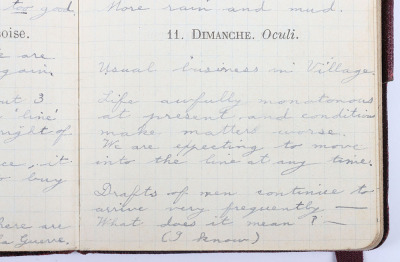 too good.
oise.
are
again.
nt 3
'line'
night of
ce, it
to buy
here are
la Guerre.
More rain and mud.
11. DIMANCHE. Oculi.
Usual business in Village.
Life awfully monotonous
at present and condition
make matters worse.
We are expecting to move
into the line at any time.
Drafts of men continue to
arrive very frequently —
What does it mean? —
(I know)